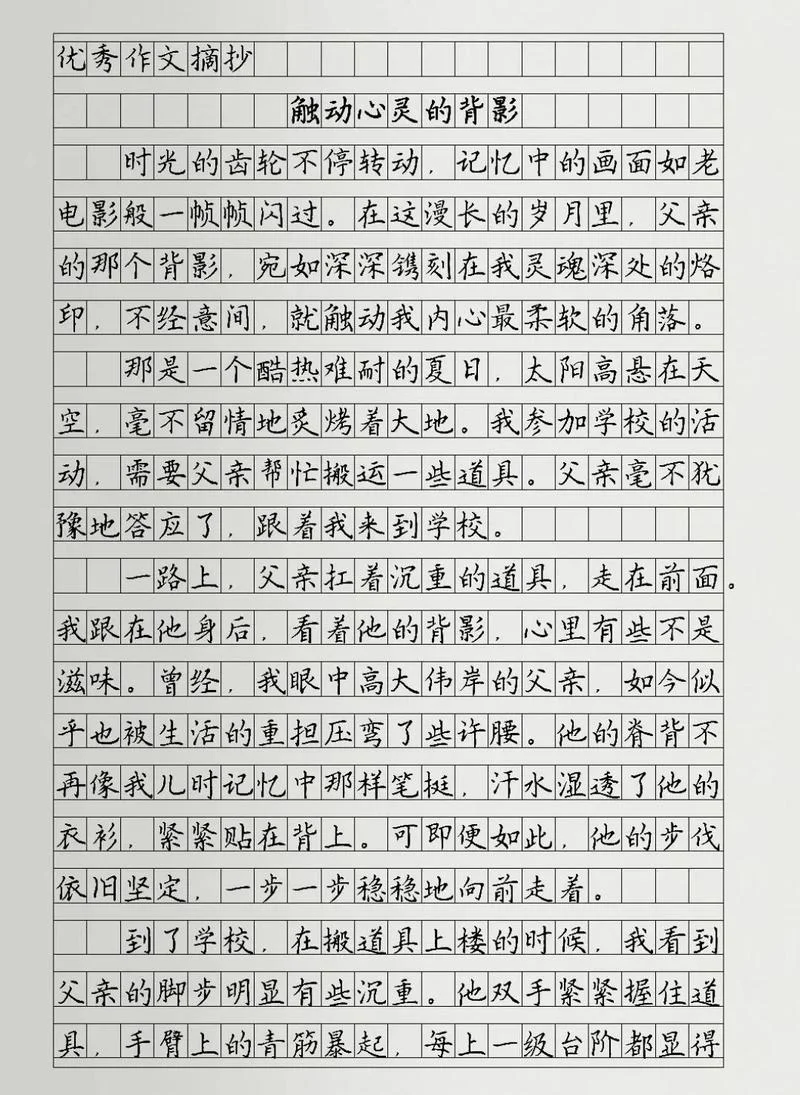 优秀作文摘抄
触动心灵的背影
时光的齿轮不停转动，记忆中的画面如老
电影般一帧帧闪过。在这漫长的岁月里，父亲
的那个背影，宛如深深镌刻在我灵魂深处的烙
印，不经意间，就触动我内心最柔软的角落。
那是一个酷热难耐的夏日，太阳高悬在天
空，毫不留情地炙烤着大地。我参加学校的活
动，需要父亲帮忙搬运一些道具。父亲毫不犹
豫地答应了，跟着我来到学校。
一路上，父亲扛着沉重的道具，走在前面。
我跟在他身后，看着他的背影，心里有些不是
滋味。曾经，我眼中高大伟岸的父亲，如今似
乎也被生活的重担压弯了些许腰。他的脊背不
再像我儿时记忆中那样笔挺，汗水湿透了他的
衣衫，紧紧贴在背上。可即便如此，他的步伐
依旧坚定，一步一步稳稳地向前走着。
到了学校，在搬道具上楼的时候，我看到
父亲的脚步明显有些沉重。他双手紧紧握住道
具，手臂上的青筋暴起，每上一级台阶都显得